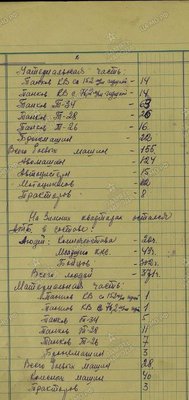 Материальная часть:
Танков КВ со 152 м/м пушкой – 14
Танков КВ с 76,2 м/м пушкой – 14
Танков Т-34 – 63
Танков Т-28 – 26
Танков Т-26 – 16
Бронемашин – 22
Всего боевых машин – 155
Автомашин – 124
Автоцистерн – 15
Мотоциклов
Тракторов – 8
На Зимних квартирах остался
в составе:
Людей: Комначсостава – 20 ч.
Младшего НКС – 49 ч.
Всего людей
Материальная часть:
Танков КВ со 152 м/м пушкой 1
Танков КВ с 76,2 м/м пушкой 1
Танков Т-34 – 5
Танков Т-28 – 11
Танков Т-26 – 7
Бронемашин – 3
Всего боевых машин – 28
Колесных машин – 40
Тракторов – 3